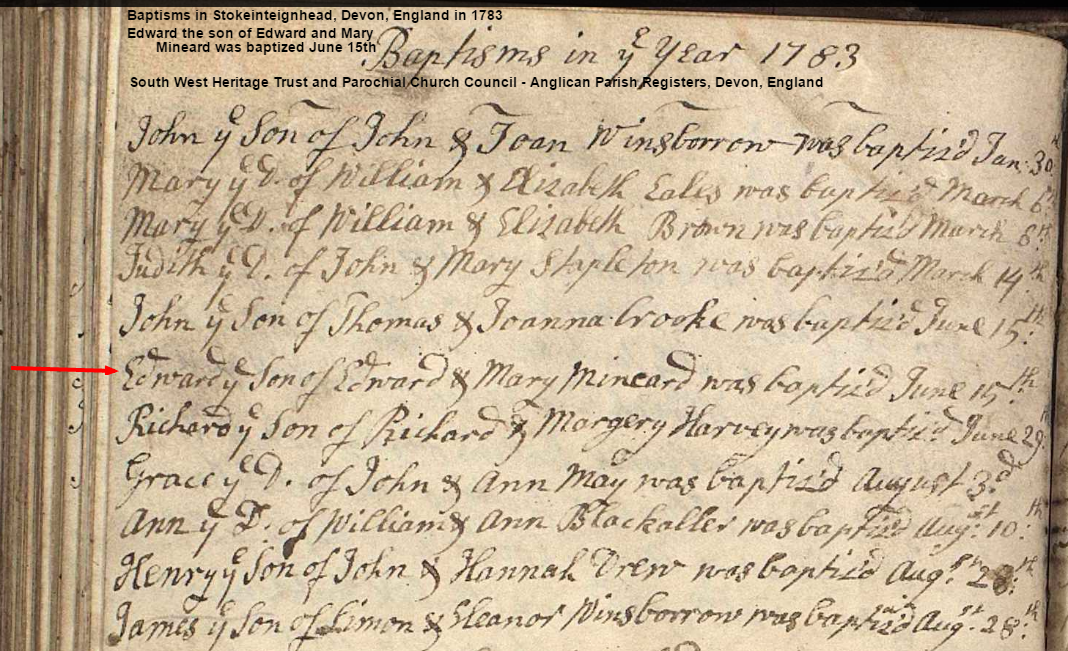 Baptisms in Stokeinteignhead, Devon, England in 1783
Edward the son of Edward and Mary
Mineard was baptized June 15th
Baptisms in yᵉ Year 1783
South West Heritage Trust and Parochial Church Council - Anglican Parish Registers, Devon, England
John yᵉ Son of John & Joan Winsborrow was baptiz'd Jan: 30th
Mary yᵉ D. of William & Elizabeth Eales was baptiz'd March 6th
Mary yᵉ D. of William & Elizabeth Brown was baptiz'd March 8th
Judith yᵉ D. of John & Mary Stapleton was baptiz'd March 14th
John yᵉ Son of Thomas & Joanna Crooke was baptiz'd June 15th
Edward yᵉ Son of Edward & Mary Mineard was baptiz'd June 15th
Richard yᵉ Son of Richard & Margery Harvey was baptiz'd June 29th
Grace yᵉ D. of John & Ann May was baptiz'd August 3d
Ann yᵉ D. of William & Ann Blackaller was baptiz'd Augst 10th
Henry yᵉ Son of John & Hannah Drew was baptiz'd Augst 28th
James yᵉ Son of Simon & Eleanor Winsborrow was baptiz'd Augst 28th